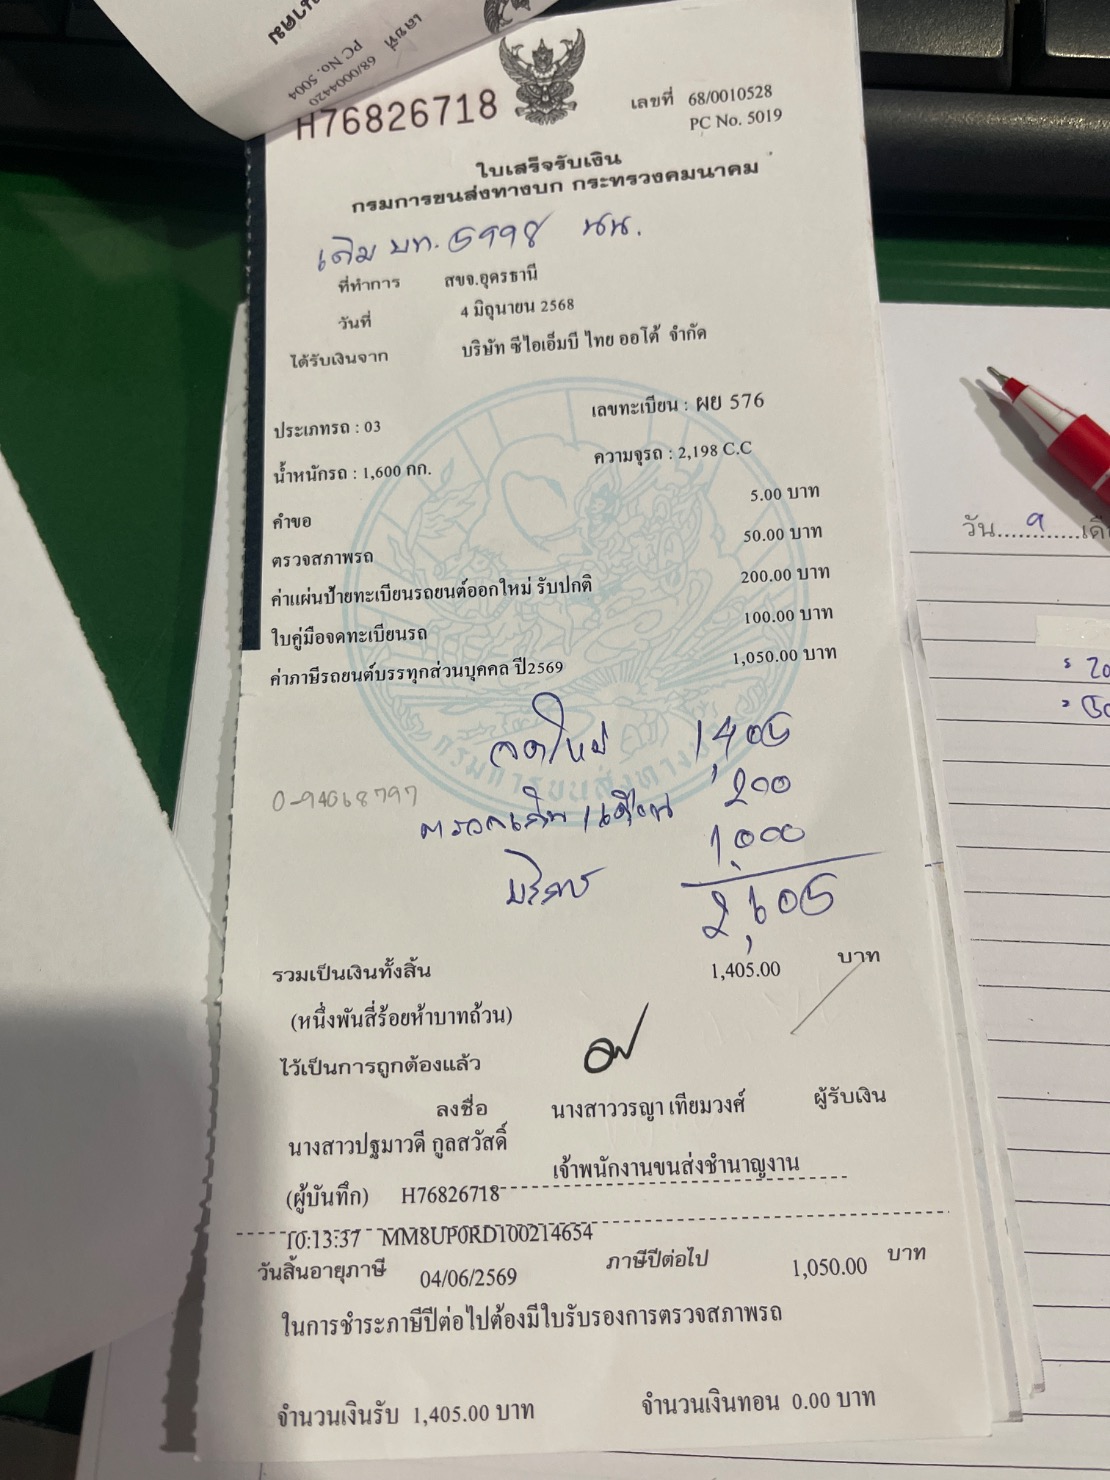 นาคม
เลขที่ 68/0004420
PC No. 5004
H76826718
เลขที่ 68/0010528
PC No. 5019
ใบเสร็จรับเงิน
กรมการขนส่งทางบก กระทรวงคมนาคม
เดิม บท. 5998 นน.
ที่ทำการ สขจ.อุดรธานี
วันที่ 4 มิถุนายน 2568
ได้รับเงินจาก บริษัท ซีไอเอ็มบี ไทย ออโต้ จำกัด
ประเภทรถ : 03 เลขทะเบียน : ผย 576
น้ำหนักรถ : 1,600 กก. ความจุรถ : 2,198 C.C
คำขอ 5.00 บาท
ตรวจสภาพรถ 50.00 บาท
ค่าแผ่นป้ายทะเบียนรถยนต์ออกใหม่ รับปกติ 200.00 บาท
ใบคู่มือจดทะเบียนรถ 100.00 บาท
ค่าภาษีรถยนต์บรรทุกส่วนบุคคล ปี2569 1,050.00 บาท
กรมการขนส่งทางบก
จดใหม่ 1,405
0-94068797
200
บริการ 1,000
2,605
รวมเป็นเงินทั้งสิ้น 1,405.00 บาท
(หนึ่งพันสี่ร้อยห้าบาทถ้วน)
ไว้เป็นการถูกต้องแล้ว
ลงชื่อ นางสาววรญา เทียมวงศ์ ผู้รับเงิน
นางสาวปฐมาวดี กูลสวัสดิ์
เจ้าพนักงานขนส่งชำนาญงาน
(ผู้บันทึก) H76826718
10:13:37 MM8UP0RD100214654
วันสิ้นอายุภาษี 04/06/2569 ภาษีปีต่อไป 1,050.00 บาท
ในการชำระภาษีปีต่อไปต้องมีใบรับรองการตรวจสภาพรถ
จำนวนเงินรับ 1,405.00 บาท จำนวนเงินทอน 0.00 บาท
วัน 9